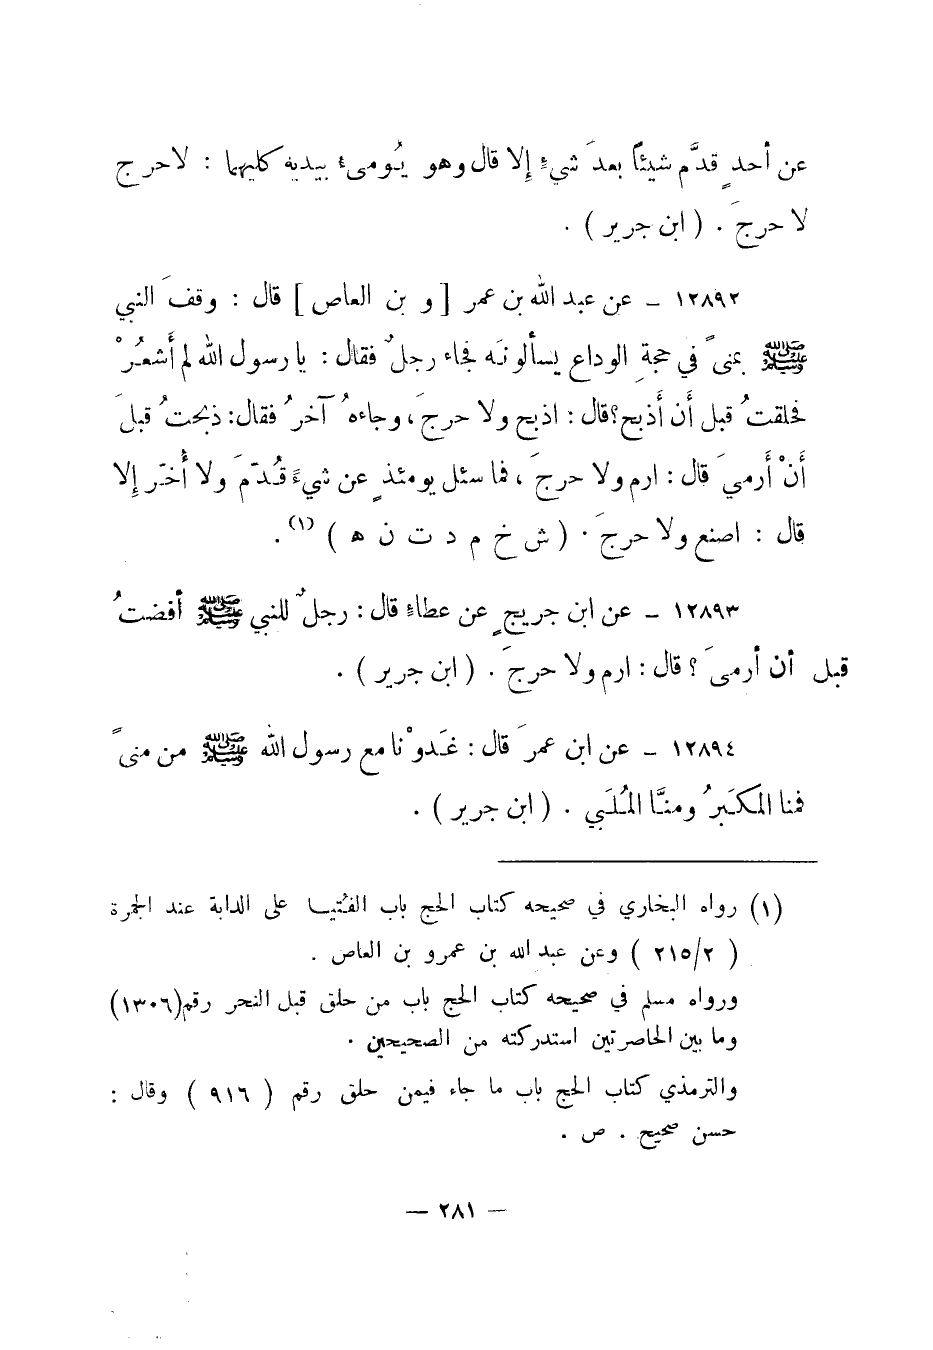 عن أحدٍ قدَّم شيئاً بعدَ شيءٍ إلا قال وهو يُومىء بيديه كليهما : لاحرج
لا حرجَ . ( ابن جرير ) .
١٢٨٩٢ – عن عبد الله بن عمر [ و بن العاص ] قال : وقفَ النبي
ﷺ بمنىً في حجةِ الوداع يسألونَه فجاء رجلٌ فقال : يا رسول الله لم أَشعُرْ
فحلقتُ قبل أن أذبح؟ قال : اذبح ولا حرجَ ، وجاءهُ آخرُ فقال: ذبحتُ قبلَ
أَنْ أَرميَ قال : ارم ولا حرجَ ، فما سئل يومئذٍ عن شيءً قُدّمَ ولا أُخّر إلا
قال : اصنع ولا حرجَ . ( ش خ م د ت ن ه ) (١) .
١٢٨٩٣ – عن ابن جريجٍ عن عطاءٍ قال : رجلٌ للنبي ﷺ أفضتُ
قبل أن أرمىَ ؟ قال : ارم ولا حرجَ . ( ابن جرير ) .
١٢٨٩٤ – عن ابن عمرَ قال : غَدوْنا مع رسول الله ﷺ من منىً
فمنا المكَبرُ ومنَّا المُلَبي . ( ابن جرير ) .
(١) رواه البخاري في صحيحه كتاب الحج باب الفُتيا على الدابة عند الجمرة
( ٢١٥/٢ ) وعن عبد الله بن عمرو بن العاص .
ورواه مسلم في صحيحه كتاب الحج باب من حلق قبل النحر رقم(١٣٠٦)
وما بين الحاصرتين استدركته من الصحيحين .
والترمذي كتاب الحج باب ما جاء فيمن حلق رقم ( ٩١٦ ) وقال :
حسن صحيح . ص .
— ٢٨١ —